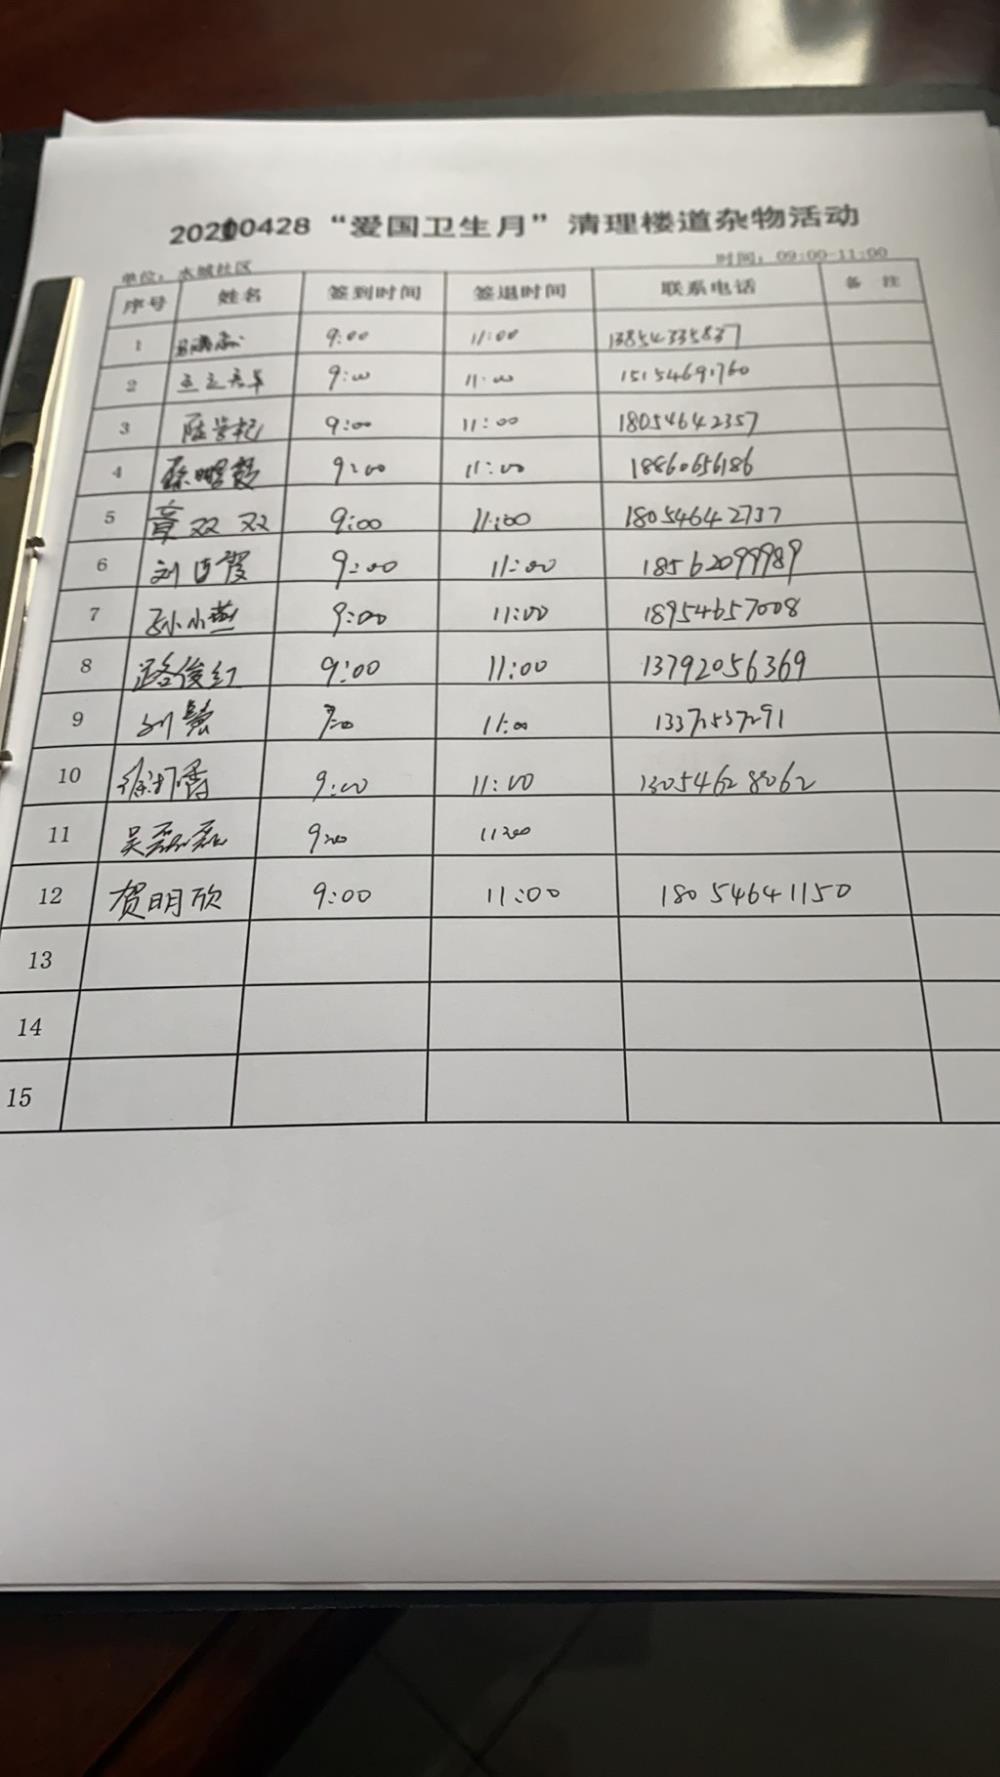 20210428“爱国卫生月”清理楼道杂物活动
单位：水城社区 时间：09:00-11:00
序号 姓名 签到时间 签退时间 联系电话 备 注
1 9:00 11:00 13854335837
2 9:00 11:00 15154691760
3 9:00 11:00 18054642357
4 9:00 11:00 18860656186
5 章双双 9:00 11:00 18054642737
6 刘 霞 9:00 11:00 18562099989
7 孙小燕 9:00 11:00 18954657008
8 路俊红 9:00 11:00 13792056369
9 刘 11:00 13371537291
10 徐 香 9:00 11:00 13054628062
11 吴磊磊 9:00 11:00
12 贺明欣 9:00 11:00 18054641150
13
14
15